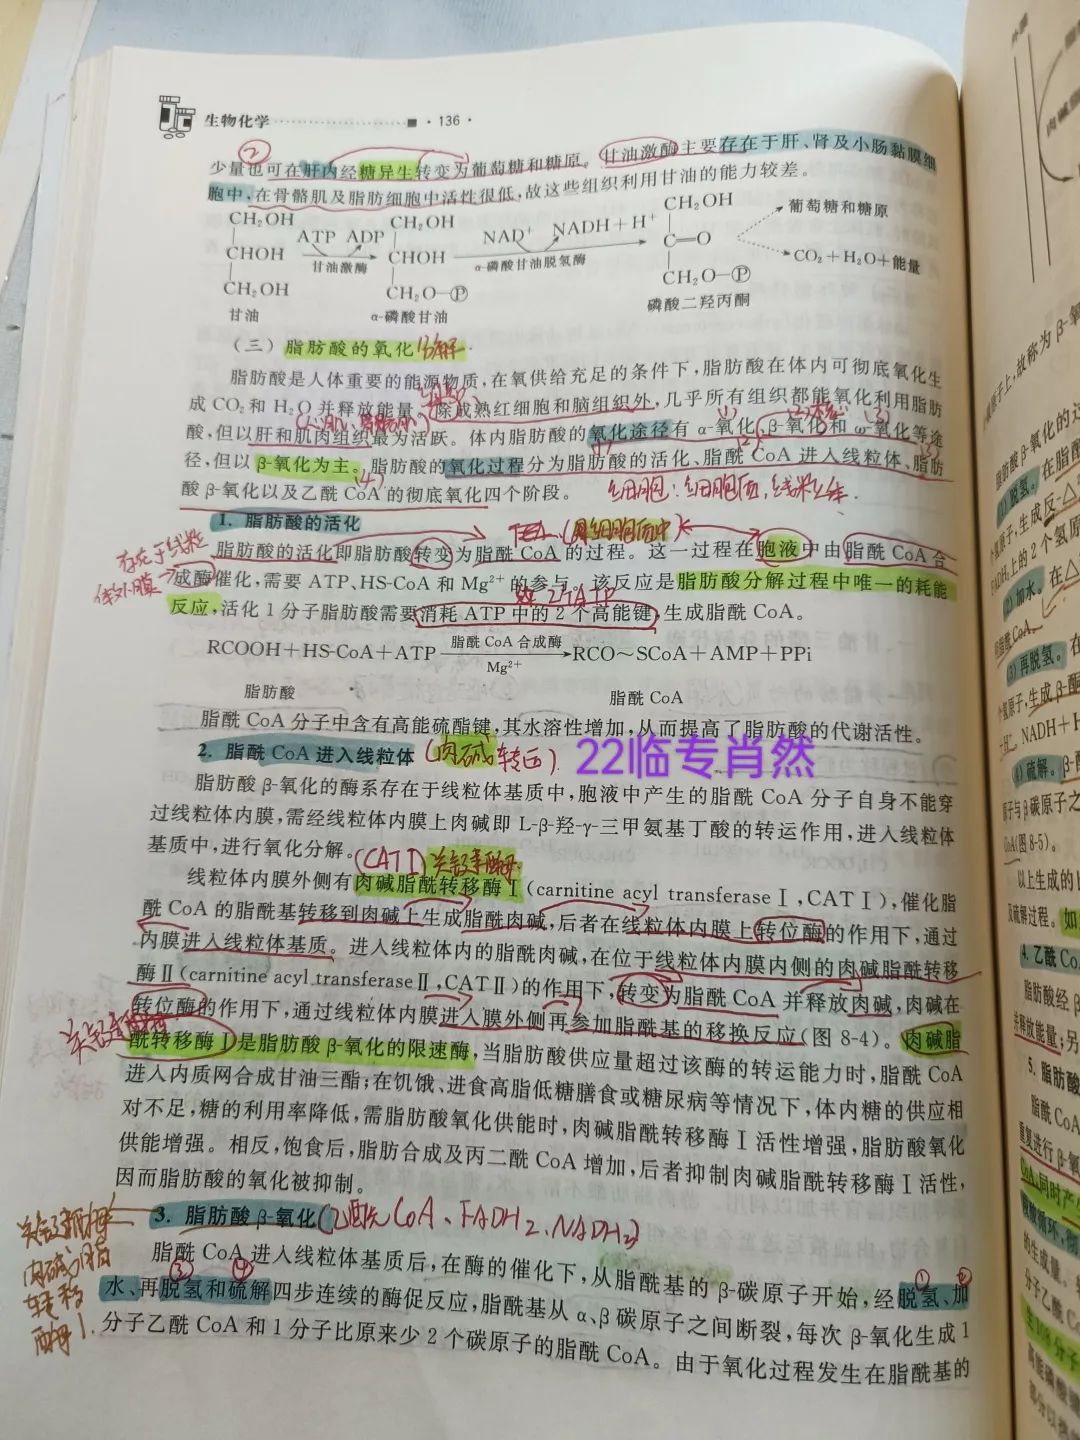 生物化学 ·136·
少量也可在肝内经糖异生转变为葡萄糖和糖原。甘油激酶主要存在于肝、肾及小肠黏膜细
胞中,在骨骼肌及脂肪细胞中活性很低,故这些组织利用甘油的能力较差。
CH₂OH CH₂OH CH₂OH 葡萄糖和糖原
ATP ADP NAD⁺ NADH+H⁺
CHOH CHOH C=O CO₂+H₂O+能量
甘油激酶 α-磷酸甘油脱氢酶
CH₂OH CH₂O-Ⓟ CH₂O-Ⓟ
甘油 α-磷酸甘油 磷酸二羟丙酮
(三)脂肪酸的氧化分解
脂肪酸是人体重要的能源物质,在氧供给充足的条件下,脂肪酸在体内可彻底氧化生
成 CO₂ 和 H₂O 并释放能量。除成熟红细胞和脑组织外,几乎所有组织都能氧化利用脂肪
酸,但以肝和肌肉组织最为活跃。体内脂肪酸的氧化途径有 α-氧化、β-氧化和 ω-氧化等途
径,但以 β-氧化为主。脂肪酸的氧化过程分为脂肪酸的活化、脂酰 CoA 进入线粒体、脂肪
酸 β-氧化以及乙酰 CoA 的彻底氧化四个阶段。
亚细胞:细胞质,线粒体.
1. 脂肪酸的活化
脂肪酸的活化即脂肪酸转变为脂酰 CoA 的过程。这一过程在胞液中由脂酰 CoA 合
存在于线粒
体外膜
成酶催化,需要 ATP、HS-CoA 和 Mg²⁺ 的参与。该反应是脂肪酸分解过程中唯一的耗能
2个ATP
反应,活化 1 分子脂肪酸需要消耗 ATP 中的 2 个高能键,生成脂酰 CoA。
RCOOH+HS-CoA+ATP 脂酰 CoA 合成酶 Mg²⁺ → RCO~SCoA+AMP+PPi
脂肪酸 脂酰 CoA
脂酰 CoA 分子中含有高能硫酯键,其水溶性增加,从而提高了脂肪酸的代谢活性。
2. 脂酰 CoA 进入线粒体 (肉碱转运). 22临专肖然
脂肪酸 β-氧化的酶系存在于线粒体基质中,胞液中产生的脂酰 CoA 分子自身不能穿
过线粒体内膜,需经线粒体内膜上肉碱即 L-β-羟-γ-三甲氨基丁酸的转运作用,进入线粒体
基质中,进行氧化分解。
(CATⅠ) 关键酶
线粒体内膜外侧有肉碱脂酰转移酶Ⅰ(carnitine acyl transferaseⅠ,CATⅠ),催化脂
酰 CoA 的脂酰基转移到肉碱上生成脂酰肉碱,后者在线粒体内膜上转位酶的作用下,通过
内膜进入线粒体基质。进入线粒体内的脂酰肉碱,在位于线粒体内膜内侧的肉碱脂酰转移
酶Ⅱ(carnitine acyl transferaseⅡ,CATⅡ)的作用下,转变为脂酰 CoA 并释放肉碱,肉碱在
转位酶的作用下,通过线粒体内膜进入膜外侧再参加脂酰基的移换反应(图 8-4)。肉碱脂
关键酶
酰转移酶Ⅰ是脂肪酸 β-氧化的限速酶,当脂肪酸供应量超过该酶的转运能力时,脂酰 CoA
进入内质网合成甘油三酯;在饥饿、进食高脂低糖膳食或糖尿病等情况下,体内糖的供应相
对不足,糖的利用率降低,需脂肪酸氧化供能时,肉碱脂酰转移酶Ⅰ活性增强,脂肪酸氧化
供能增强。相反,饱食后,脂肪合成及丙二酰 CoA 增加,后者抑制肉碱脂酰转移酶Ⅰ活性,
因而脂肪酸的氧化被抑制。
3. 脂肪酸 β-氧化(乙酰CoA、FADH₂、NADH₂)
关键酶
肉碱脂
转移
酶1.
脂酰 CoA 进入线粒体基质后,在酶的催化下,从脂酰基的 β-碳原子开始,经脱氢、加
水、再脱氢和硫解四步连续的酶促反应,脂酰基从 α、β 碳原子之间断裂,每次 β-氧化生成 1
分子乙酰 CoA 和 1 分子比原来少 2 个碳原子的脂酰 CoA。由于氧化过程发生在脂酰基的
子上,故称为 β-氧
(2)加水。在
(3)再脱氢。在
NADH+H
(4)硫解。β-酮
CoA(图8-5)。
以上生成的
及硫解过程。如
4. 乙酰Co
脂肪酸经β
并释放能量;另
5. 脂肪酸
脂酰 CoA
重复进行β-氧